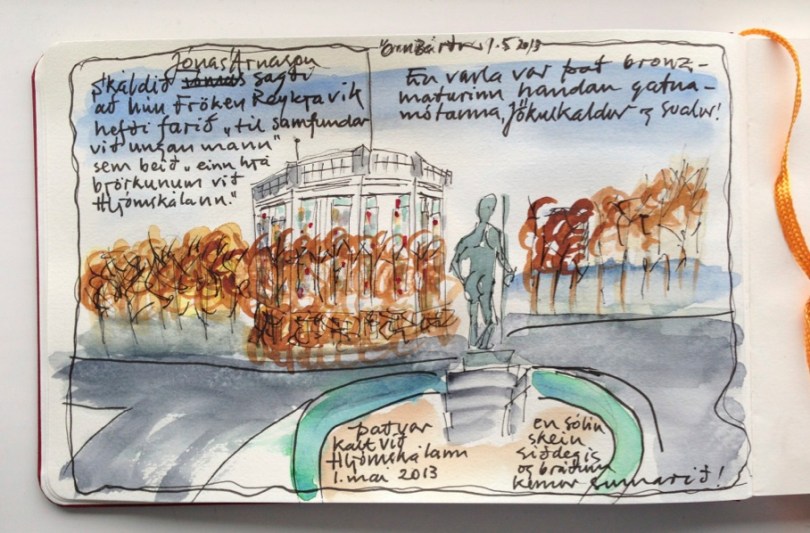 Jónas Árnason
skáldið Jónas sagði
að hún fröken Reykjavík
hefði farið „til samfundar
við ungan mann"
sem beið „einn hjá
björkunum við
Hljómskálann."
1.5 2013
En varla var það bronz-
maturinn handan gatna-
mótanna, Jökulkaldur og svalur!
það var
kalt við
Hljómskálann
1. maí 2013
en sólin
skein
síðdegis
og bráðum
kemur sumarið!